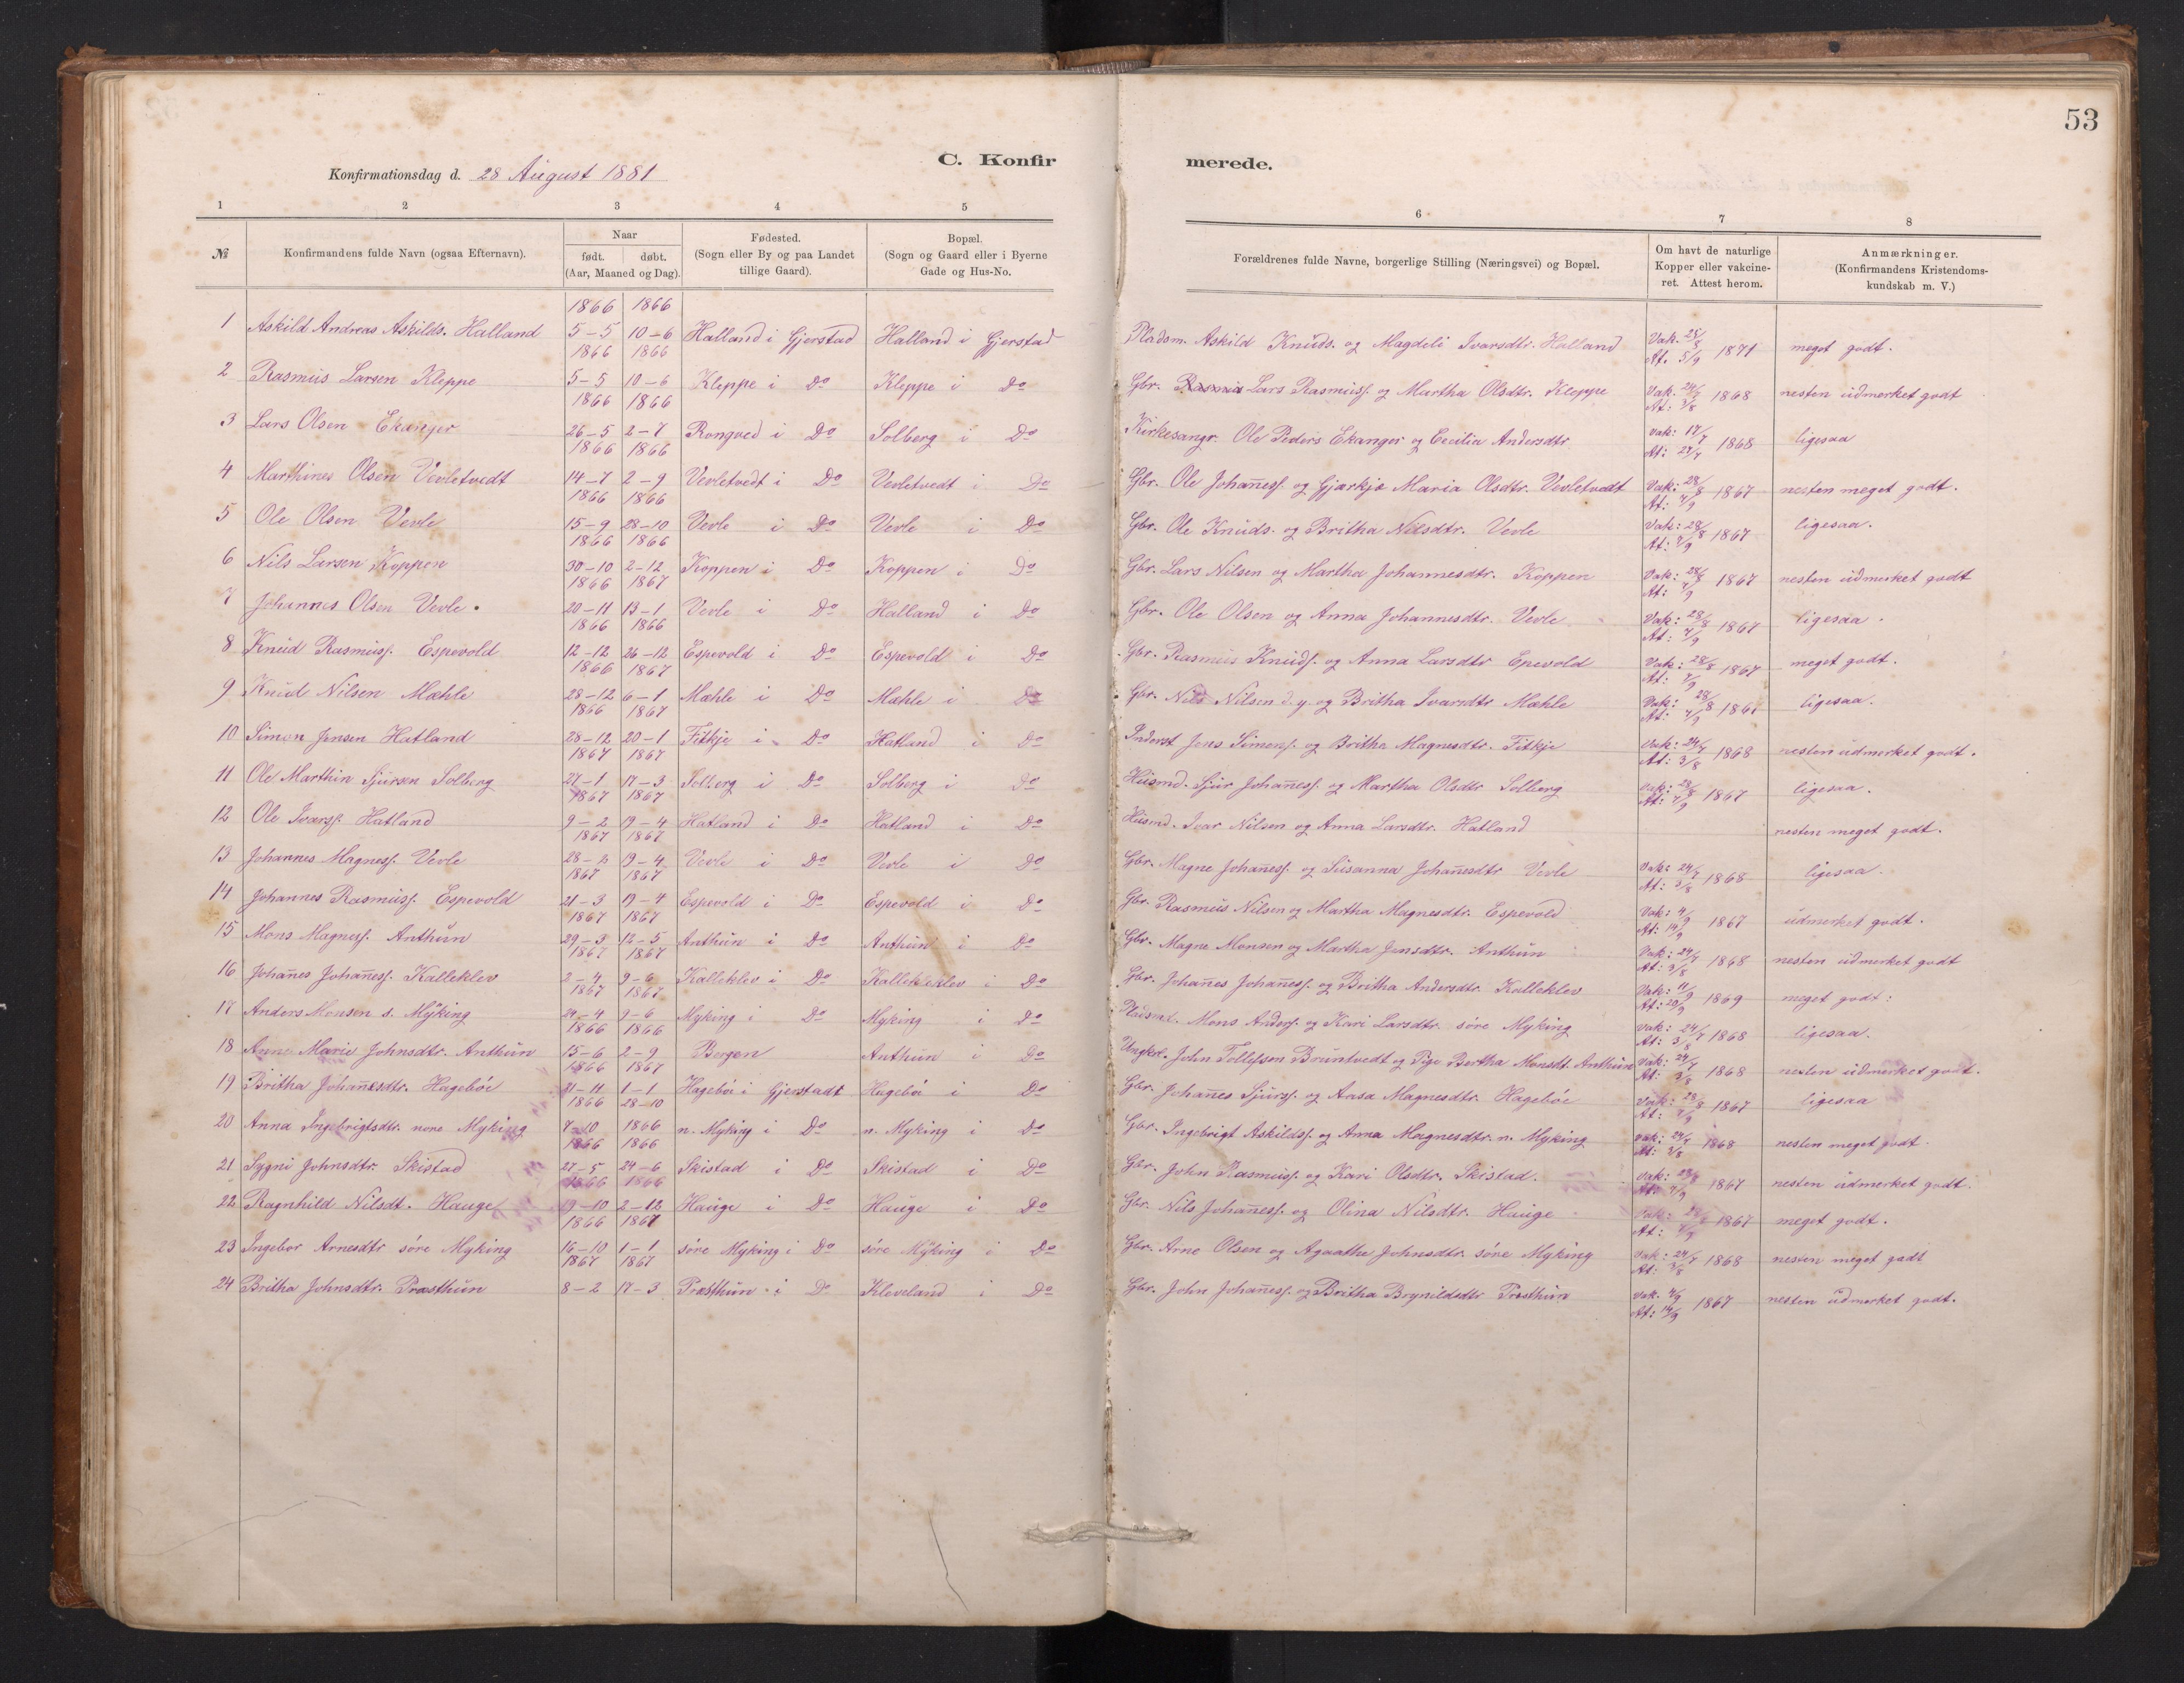 53
C. Konfirmerede.
Konfirmationsdag d. 28 August 1881
1 2 3 4 5 6 7 8
№ | Konfirmandens fulde Navn (ogsaa Efternavn). | Naar født. døbt. (Aar, Maaned og Dag). | Fødested. (Sogn eller By og paa Landet tillige Gaard). | Bopæl. (Sogn og Gaard eller i Byerne Gade og Hus-No. | Forældrenes fulde Navne, borgerlige Stilling (Næringsvei) og Bopæl. | Om havt de naturlige Kopper eller vakcineret. Attest herom. | Anmærkninger. (Konfirmandens Kristendomskundskab m. V.)
1 Askild Andreas Askilds. Halland | 1866 5-5 | 1866 10-6 | Halland i Gjerstad | Halland i Gjerstad | Pladsm. Askild Knuds. og Magdeli Ivarsdtr. Halland | Vak. 28/8 At. 5/9 1871 | meget godt.
2 Rasmus Larsen Kleppe | 1866 5-5 | 1866 10-6 | Kleppe i Do | Kleppe i Do | Gbr. Lars Rasmuss. og Martha Olsdtr. Kleppe | Vak. 24/7 At: 3/8 1868 | nesten udmerket godt
3 Lars Olsen Ekanger | 1866 26-5 | 1866 2-7 | Rongved i Do | Solberg i Do | Kirkesangr. Ole Peders Ekanger og Cecilia Andersdtr. | Vak: 17/7 At: 27/7 1868 | ligesaa
4 Marthines Olsen Vevletvedt | 1866 14-7 | 1866 2-9 | Vevletvedt i Do | Vevletvedt i Do | Gbr. Ole Johaness. og Gjærkje Maria Olsdtr. Vevletvedt | Vak: 28/8 At: 7/9 1867 | nesten meget godt.
5 Ole Olsen Vevle | 1866 15-9 | 1866 28-10 | Vevle i Do | Vevle i Do | Gbr. Ole Knuds. og Britha Nilsdtr. Vevle | Vak: 28/8 At: 7/9 1867 | ligesaa.
6 Nils Larsen Koppen | 1866 30-10 | 1866 2-12 | Koppen i Do | Koppen i Do | Gbr. Lars Nilsen og Martha Johannesdtr. Koppen | Vak: 28/8 At: 7/9 1867 | nesten udmerket godt
7 Johannes Olsen Vevle. | 1866 20-11 | 1867 13-1 | Vevle i Do | Halland i Do | Gbr. Ole Olsen og Anna Johannesdtr. Vevle | Vak: 28/8 At: 7/9 1867 | ligesaa.
8 Knud Rasmuss. Espevold | 1866 12-12 | 1866 26-12 | Espevold i Do | Espevold i Do | Gbr. Rasmus Knuds. og Anna Larsdtr Epevold | Vak: 28/8 At: 7/9 1867 | meget godt.
9 Knud Nilsen Mæhle | 1866 28-12 | 1867 6-1 | Mæhle i Do | Mæhle i Do | Gbr. Nils Nilsen d.y. og Britha Ivarsdtr Mæhle | Vak: 28/8 At: 7/9 1867 | ligesaa.
10 Simon Jensen Hatland | 1866 28-12 | 1867 20-1 | Fitkje i Do | Hatland i Do | Inderst Jens Simens. og Britha Magnesdtr. Fitkje | Vak: 24/7 At: 3/8 1868 | nesten udmerket godt.
11 Ole Marthin Sjursen Solberg | 1867 27-1 | 1867 17-3 | Solberg i Do | Solberg i Do | Husmd. Sjur Johaness. og Martha Olsdtr Solberg | Vak: 28/8 At: 7/9 1867 | ligesaa.
12 Ole Ivarss. Hatland | 1867 9-2 | 1867 19-4 | Hatland i Do | Hatland i Do | Husmd. Ivar Nilsen og Anna Larsdtr. Hatland | nesten meget godt.
13 Johannes Magness. Vevle | 1867 28-2 | 1867 19-4 | Vevle i Do | Vevle i Do | Gbr. Magne Johaness. og Susanna Johanesdtr Vevle | Vak: 24/7 At: 3/8 1868 | ligesaa.
14 Johannes Rasmuss. Espevold | 1867 21-3 | 1867 19-4 | Espevold i Do | Espevold i Do | Gbr. Rasmus Nilsen og Martha Magnesdtr. Espevold | Vak: 4/9 At: 14/9 1867 | udmerket godt.
15 Mons Magness. Anthun | 1867 29-3 | 1867 12-5 | Anthun i Do | Anthun i Do | Gbr. Magne Monsen og Martha Jensdtr. Anthun | Vak: 24/7 At: 3/8 1868 | nesten udmerket godt
16 Johanes Johaness. Kalleklev | 1867 2-4 | 1867 9-6 | Kalleklev i Do | Kalleklev i Do | Gbr. Johanes Johaness. og Britha Andersdtr. Kalleklev | Vak: 11/9 At: 20/9 1869 | meget godt:
17 Anders Monsen s. Myking | 1867 24-4 | 1867 9-6 | Myking i Do | Myking i Do | Pladsmd. Mons Anders. og Kari Larsdtr. søre Myking | Vak: 24/7 At: 3/8 1868 | ligesaa.
18 Anne Marie Johnsdtr. Anthun | 1866 15-6 | 1866 2-9 | Bergen | Anthun i Do | Ungkrl. John Tollefsen Bruntvedt og Pige Bertha Monsdt. Anthun | Vak: 24/7 At: 3/8 1868 | nesten udmerket godt.
19 Britha Johanesdtr. Hagebøe | 1866 21-11 | 1867 1-1 | Hagebøi i Gjerstadt | Hagebøi i Do | Gbr. Johanes Sjurss. og Aasa Magnesdtr. Hagebøe | Vak: 28/8 At: 7/9 1867 | ligesaa
20 Anna Ingebrigtsdtr. nore Myking | 1866 7-10 | 28-10 1866 | n. Myking i Do | n. Myking i Do | Gbr. Ingebrigt Askildss. og Anna Magnesdtr. n. Myking | Vak: 24/7 At: 3/8 1868 | nesten meget godt.
21 Sygni Johnsdtr. Skistad | 1866 27-5 | 1866 24-6 | Skistad i Do | Skistad i Do | Gbr. John Rasmuss. og Kari Olsdtr. Skistad. | Vak: 28/8 At: 7/9 1867 | nesten udmerket godt.
22 Ragnhild Nilsdt. Hauge | 1866 19-10 | 1866 2-12 | Hauge i Do | Hauge i Do | Gbr. Nils Johaness. og Olina Nilsdtr. Hauge | Vak: 28/8 At: 7/9 1867 | meget godt.
23 Ingebor Arnesdtr søre Myking | 1866 16-10 | 1867 1-1 | søre Myking i Do | søre Myking i Do | Gbr. Arne Olsen og Agaathe Johnsdtr. søre Myking | Vak: 24/7 At: 3/8 1868 | nesten meget godt
24 Britha Johnsdtr. Præsthun | 1867 8-2 | 1867 17-3 | Præsthun i Do | Kleveland i Do | Gbr. John Johaness. og Britha Brynildsdtr Præsthun | Vak. 4/9 At: 14/9 1867 | nesten udmerket godt.